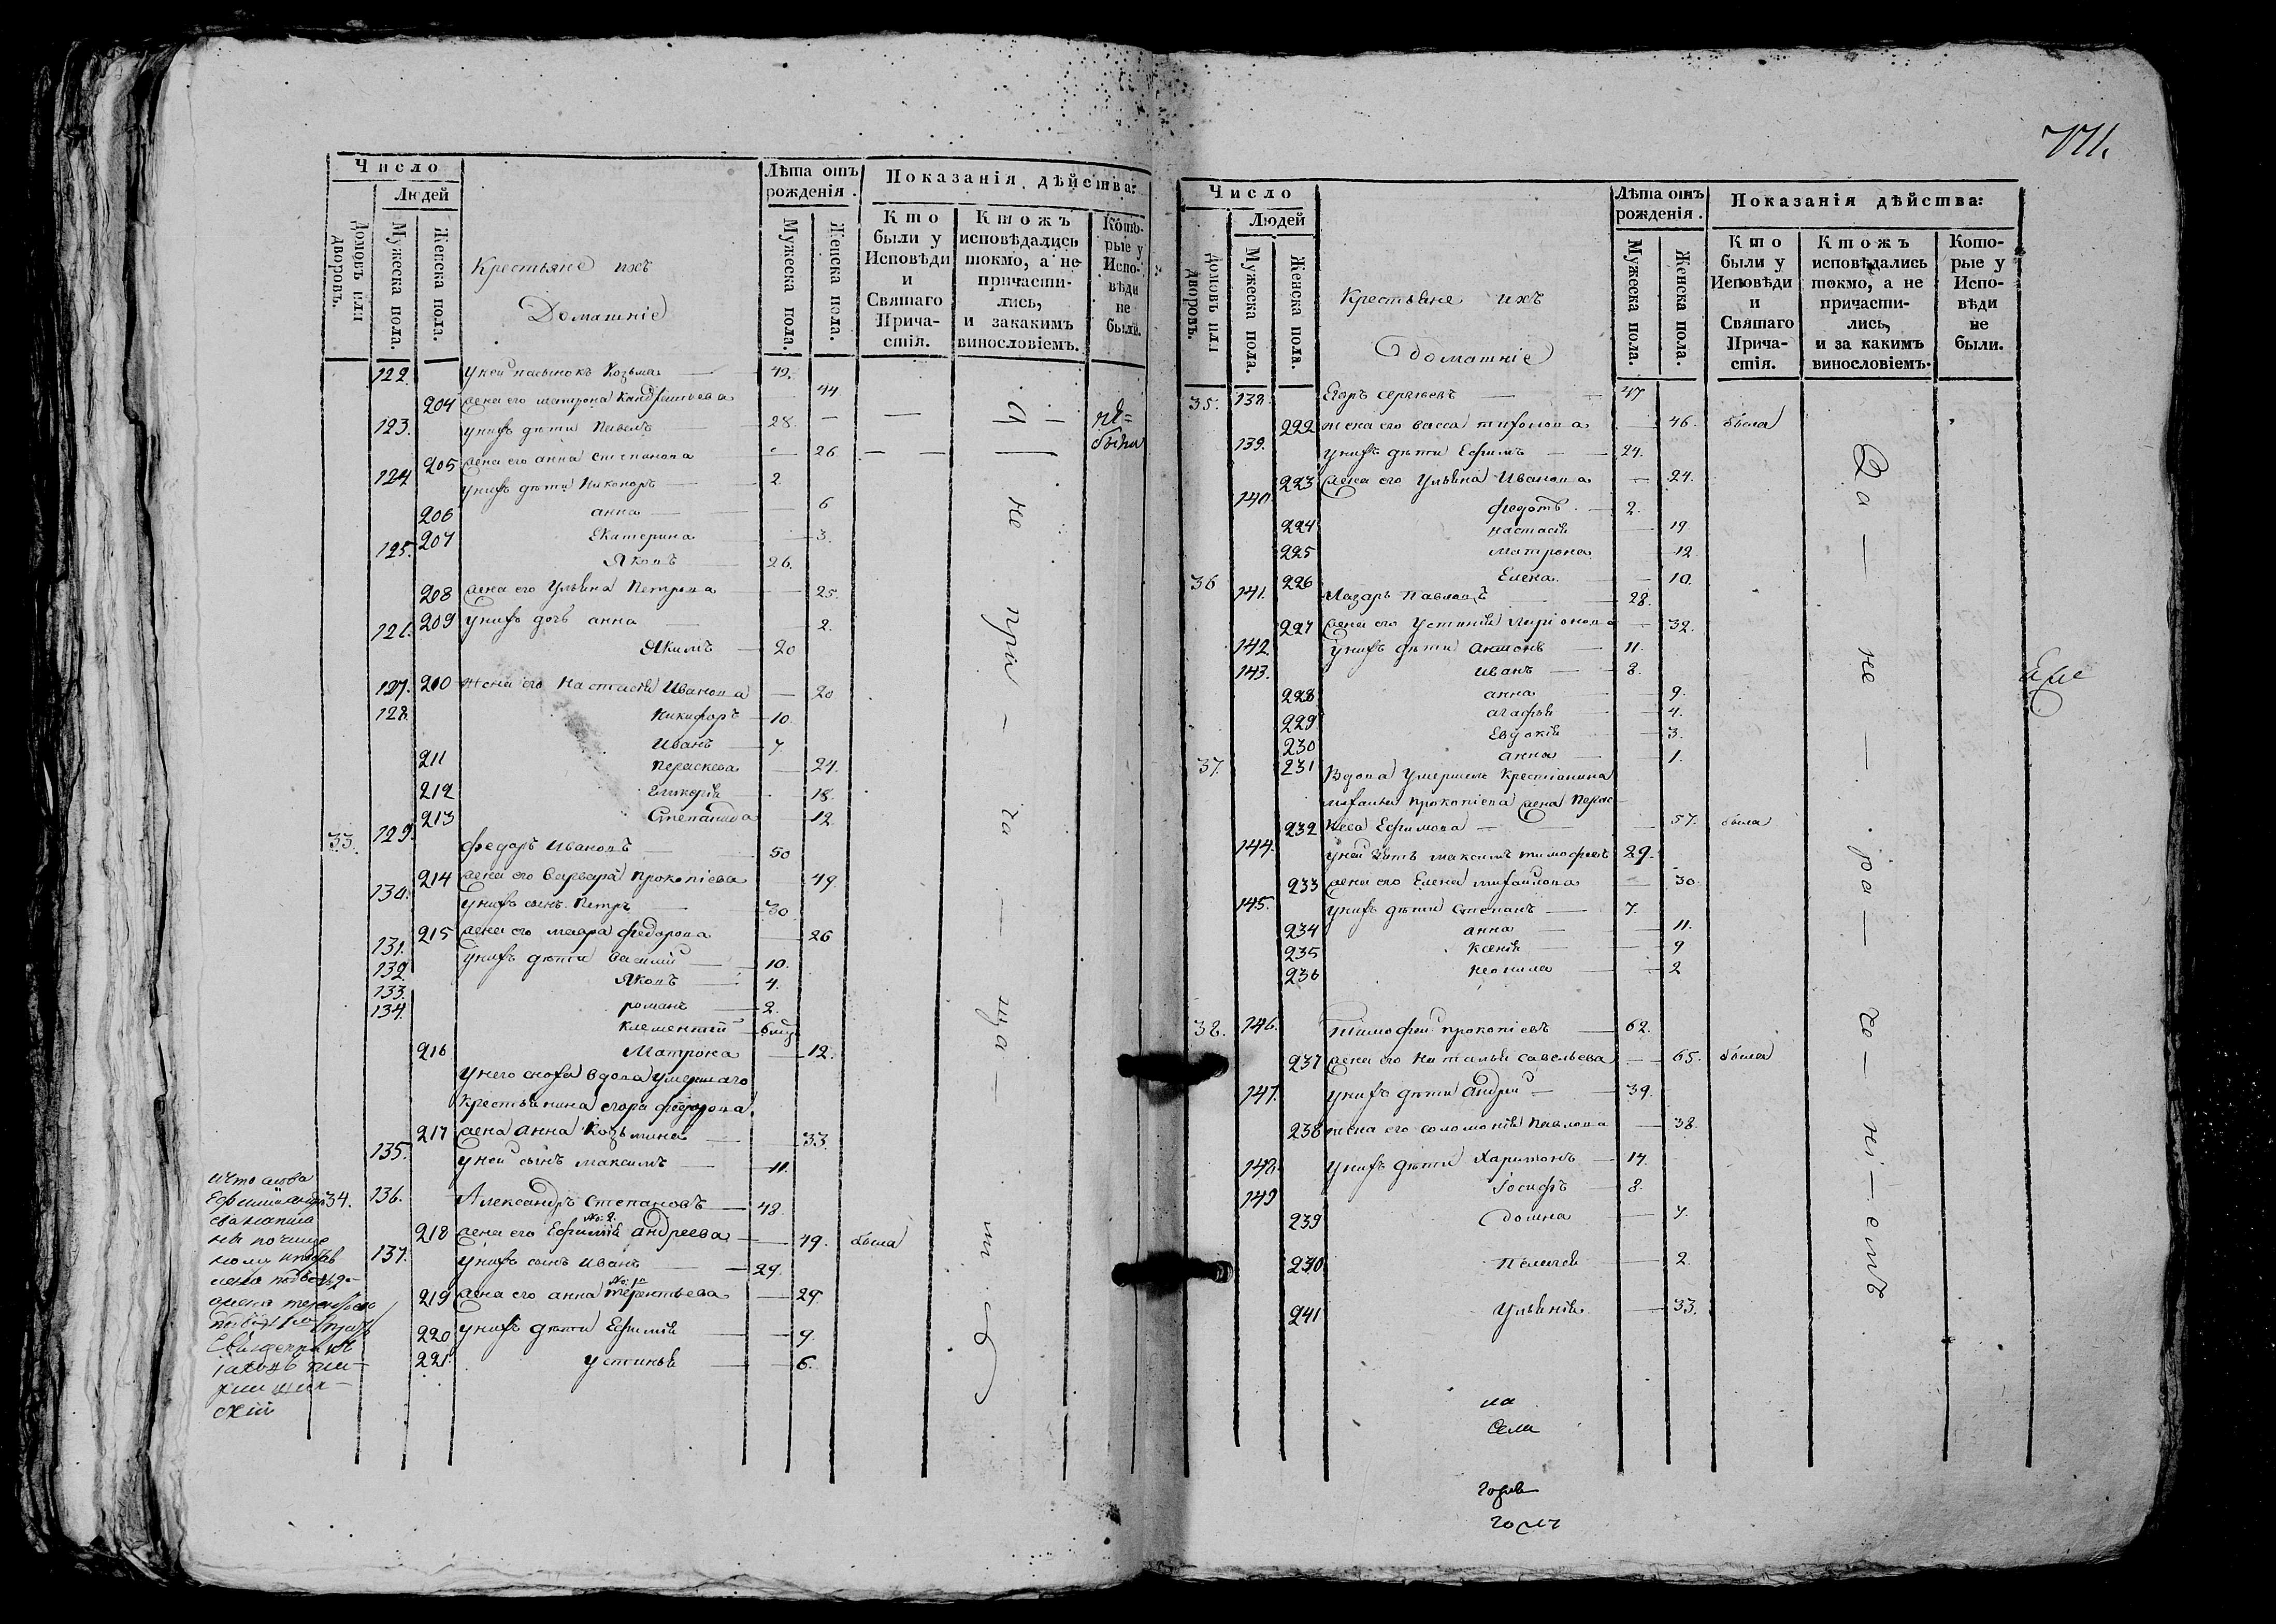 Число
Людей
Домовъ или дворовъ.
Мужеска пола.
Женска пола.
Крестьяне ихъ
Домашніе
Лѣта отъ рожденія.
Мужеска пола.
Женска пола.
Показанія дѣйства:
Кто были у Исповѣди и Святаго Причастія.
Ктожъ исповѣдались токмо, а не причастились, и закакимъ винословіемъ.
Которые у Исповѣди не были.
122. У ней пасынокъ Козьма 42.
204 жена его матрона Кандратьева 44
123. У нихъ дѣти Павелъ 28.
не были
205 жена его анна степанова 26
124 У нихъ дѣти Никоноръ 2
206 анна 6
207 Екатерина 3.
125. Яковъ 26.
208 жена его Ульяна Петрова 25.
209 У нихъ дочь анна 2.
126. Якимъ 20
210 жена его Настасья Иванова 20
127. Никифоръ 10.
128. Иванъ 7
211 Параскева 24.
212 Гликерія 18.
213 Степанида 12
33. 129. Федоръ Ивановъ 50
214 жена его Варвара Прокопіева 49
130. У нихъ сынъ Петръ 30
215 жена его мавра федорова 26
131. У нихъ дѣти Василій 10.
132 Яковъ 4.
133. романъ 2.
134. клементій 6 мцъ
216 Матрона 12.
У него сноха вдова умершаго
Крестьянина егора федорова
217 жена Анна Козьмина 33
135. У ней сынъ максимъ 11.
34. 136. Александръ Степановъ 48.
№: 2.
218 жена его Ефимія андреева 49. была
137. У нихъ сынъ Иванъ 29.
№: 1й
219 жена его анна терентьева 29.
220 У нихъ дѣти Ефимія 9.
221 устинья 6.
711.
Число
Людей
Домовъ или дворовъ.
Мужеска пола.
Женска пола.
Крестьяне ихъ
домашніе
Лѣта отъ рожденія.
Мужеска пола.
Женска пола.
Показанія дѣйства:
Кто были у Исповѣди и Святаго Причастія.
Ктожъ исповѣдались токмо, а не причастились, и за какимъ винословіемъ.
Которые у Исповѣди не были.
35. 138. Егоръ сергѣевъ 47
222 жена его васса тихонова 46. была
139. У нихъ дѣти Ефимъ 24.
223 жена его Ульяна Иванова 24.
140. федотъ 2.
224 настасія 19
225 матрона 12
226 Елена 10.
36 141. Лазарь Павловъ 28.
227 жена его Устинія Ларіонова 32.
142. У нихъ дѣти антонъ 11.
143. иванъ 8.
228 анна 9.
229 агафья 4.
230 Евдокія 3.
231 анна 1.
37. Вдова умершаго Крестьянина
михаила прокопіева жена Парас
232 кева Ефимова 57. была
144. У ней зять максимъ тимофеевъ 29.
233 жена его Елена михайлова 30
145. У нихъ дѣти Степанъ 7.
234 анна 11.
235 Ксенія 9
236 неонила 2
38. 146. Тимофей прокопіевъ 62.
237 жена его Наталья савельева 65. была
147. У нихъ дѣти андрей 39.
238 жена его соломонія Павлова 38.
148. У нихъ дѣти Харитонъ 14.
149 Іосифъ 8.
239 домна 7.
230 Пелагея 2.
241 Ульянія 33.
За не ра де ні емъ